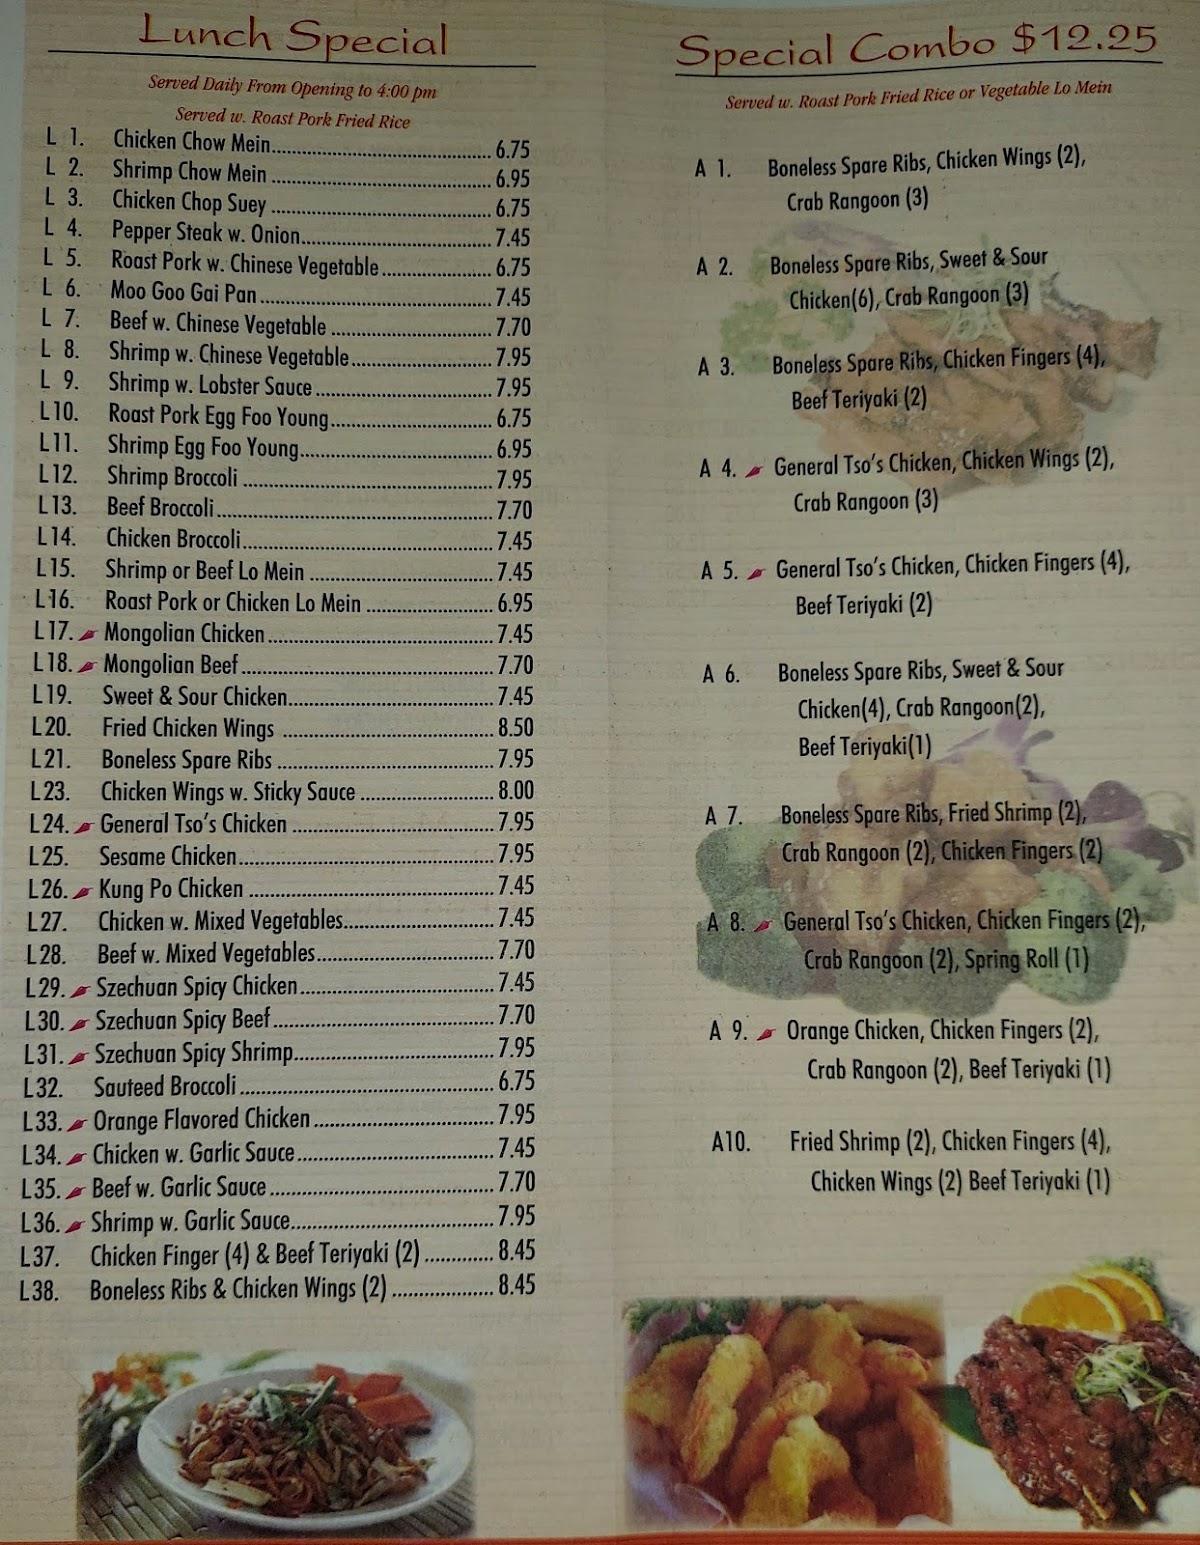 Lunch Special
Served Daily From Opening to 4:00 pm
Served w. Roast Pork Fried Rice
L 1. Chicken Chow Mein 6.75
L 2. Shrimp Chow Mein 6.95
L 3. Chicken Chop Suey 6.75
L 4. Pepper Steak w. Onion 7.45
L 5. Roast Pork w. Chinese Vegetable 6.75
L 6. Moo Goo Gai Pan 7.45
L 7. Beef w. Chinese Vegetable 7.70
L 8. Shrimp w. Chinese Vegetable 7.95
L 9. Shrimp w. Lobster Sauce 7.95
L10. Roast Pork Egg Foo Young 6.75
L11. Shrimp Egg Foo Young 6.95
L12. Shrimp Broccoli 7.95
L13. Beef Broccoli 7.70
L14. Chicken Broccoli 7.45
L15. Shrimp or Beef Lo Mein 7.45
L16. Roast Pork or Chicken Lo Mein 6.95
L17. Mongolian Chicken 7.45
L18. Mongolian Beef 7.70
L19. Sweet & Sour Chicken 7.45
L20. Fried Chicken Wings 8.50
L21. Boneless Spare Ribs 7.95
L23. Chicken Wings w. Sticky Sauce 8.00
L24. General Tso's Chicken 7.95
L25. Sesame Chicken 7.95
L26. Kung Po Chicken 7.45
L27. Chicken w. Mixed Vegetables 7.45
L28. Beef w. Mixed Vegetables 7.70
L29. Szechuan Spicy Chicken 7.45
L30. Szechuan Spicy Beef 7.70
L31. Szechuan Spicy Shrimp 7.95
L32. Sauteed Broccoli 6.75
L33. Orange Flavored Chicken 7.95
L34. Chicken w. Garlic Sauce 7.45
L35. Beef w. Garlic Sauce 7.70
L36. Shrimp w. Garlic Sauce 7.95
L37. Chicken Finger (4) & Beef Teriyaki (2) 8.45
L38. Boneless Ribs & Chicken Wings (2) 8.45
Special Combo $12.25
Served w. Roast Pork Fried Rice or Vegetable Lo Mein
A 1. Boneless Spare Ribs, Chicken Wings (2),
Crab Rangoon (3)
A 2. Boneless Spare Ribs, Sweet & Sour
Chicken(6), Crab Rangoon (3)
A 3. Boneless Spare Ribs, Chicken Fingers (4),
Beef Teriyaki (2)
A 4. General Tso's Chicken, Chicken Wings (2),
Crab Rangoon (3)
A 5. General Tso's Chicken, Chicken Fingers (4),
Beef Teriyaki (2)
A 6. Boneless Spare Ribs, Sweet & Sour
Chicken(4), Crab Rangoon(2),
Beef Teriyaki(1)
A 7. Boneless Spare Ribs, Fried Shrimp (2),
Crab Rangoon (2), Chicken Fingers (2)
A 8. General Tso's Chicken, Chicken Fingers (2),
Crab Rangoon (2), Spring Roll (1)
A 9. Orange Chicken, Chicken Fingers (2),
Crab Rangoon (2), Beef Teriyaki (1)
A10. Fried Shrimp (2), Chicken Fingers (4),
Chicken Wings (2) Beef Teriyaki (1)